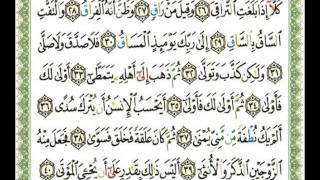 كَلَّآ إِذَا بَلَغَتِ ٱلتَّرَاقِيَ ٢٦ وَقِيلَ مَنۡۜ رَاقٖ ٢٧ وَظَنَّ أَنَّهُ ٱلۡفِرَاقُ ٢٨ وَٱلۡتَفَّتِ
ٱلسَّاقُ بِٱلسَّاقِ ٢٩ إِلَىٰ رَبِّكَ يَوۡمَئِذٍ ٱلۡمَسَاقُ ٣٠ فَلَا صَدَّقَ وَلَا صَلَّىٰ
٣١ وَلَٰكِن كَذَّبَ وَتَوَلَّىٰ ٣٢ ثُمَّ ذَهَبَ إِلَىٰٓ أَهۡلِهِۦ يَتَمَطَّىٰٓ ٣٣ أَوۡلَىٰ لَكَ
فَأَوۡلَىٰ ٣٤ ثُمَّ أَوۡلَىٰ لَكَ فَأَوۡلَىٰٓ ٣٥ أَيَحۡسَبُ ٱلۡإِنسَٰنُ أَن يُتۡرَكَ سُدًى ٣٦
أَلَمۡ يَكُ نُطۡفَةٗ مِّن مَّنِيّٖ يُمۡنَىٰ ٣٧ ثُمَّ كَانَ عَلَقَةٗ فَخَلَقَ فَسَوَّىٰ ٣٨ فَجَعَلَ مِنۡهُ
ٱلزَّوۡجَيۡنِ ٱلذَّكَرَ وَٱلۡأُنثَىٰٓ ٣٩ أَلَيۡسَ ذَٰلِكَ بِقَٰدِرٍ عَلَىٰٓ أَن يُحۡـِۧيَ ٱلۡمَوۡتَىٰ ٤٠